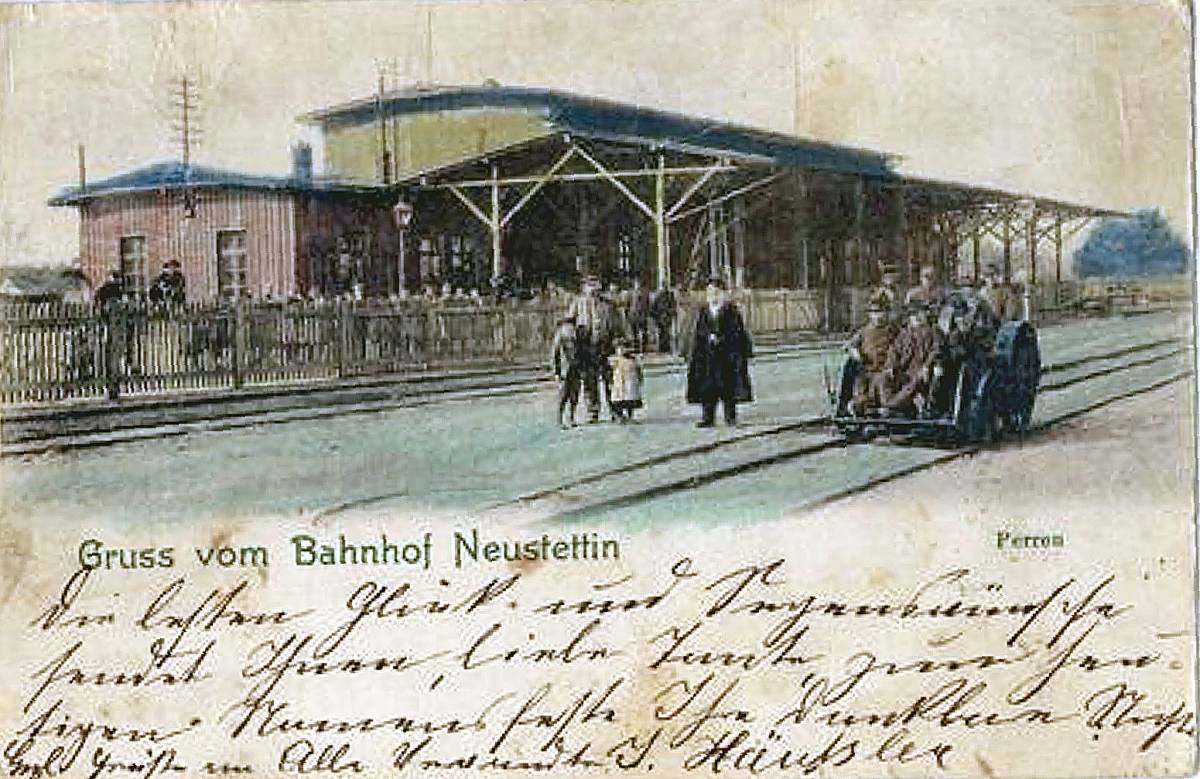 Gruss vom Bahnhof Neustettin
Perron
Die besten Glück- und Segenswünsche
sendet Ihnen, liebe Tante, zum heu-
tigen Namensfeste Ihre dankbare Nichte
Grüße an Alle Verwandte J. Häußler